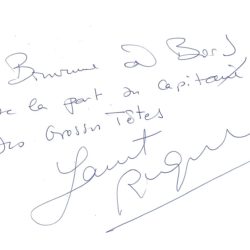 Bienvenue à Bord
de la part du Capitaine
des Grosses Têtes
Laurent
Ruquier